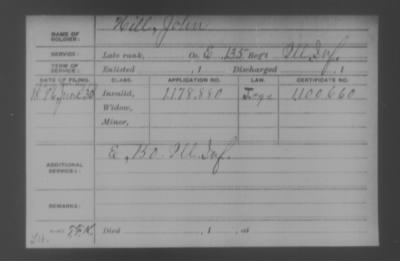 NAME OF SOLDIER: Hill, John
SERVICE: Late rank, Co. E, 135 Reg't Ill. Inf.
TERM OF SERVICE: Enlisted , 1 Discharged , 1
DATE OF FILING. CLASS. APPLICATION NO. LAW. CERTIFICATE NO.
June 30 Invalid, 1178,880 1100,660
Widow,
Minor,
ADDITIONAL SERVICE: E, Ill. Inf.
REMARKS:
Died , 1 , at